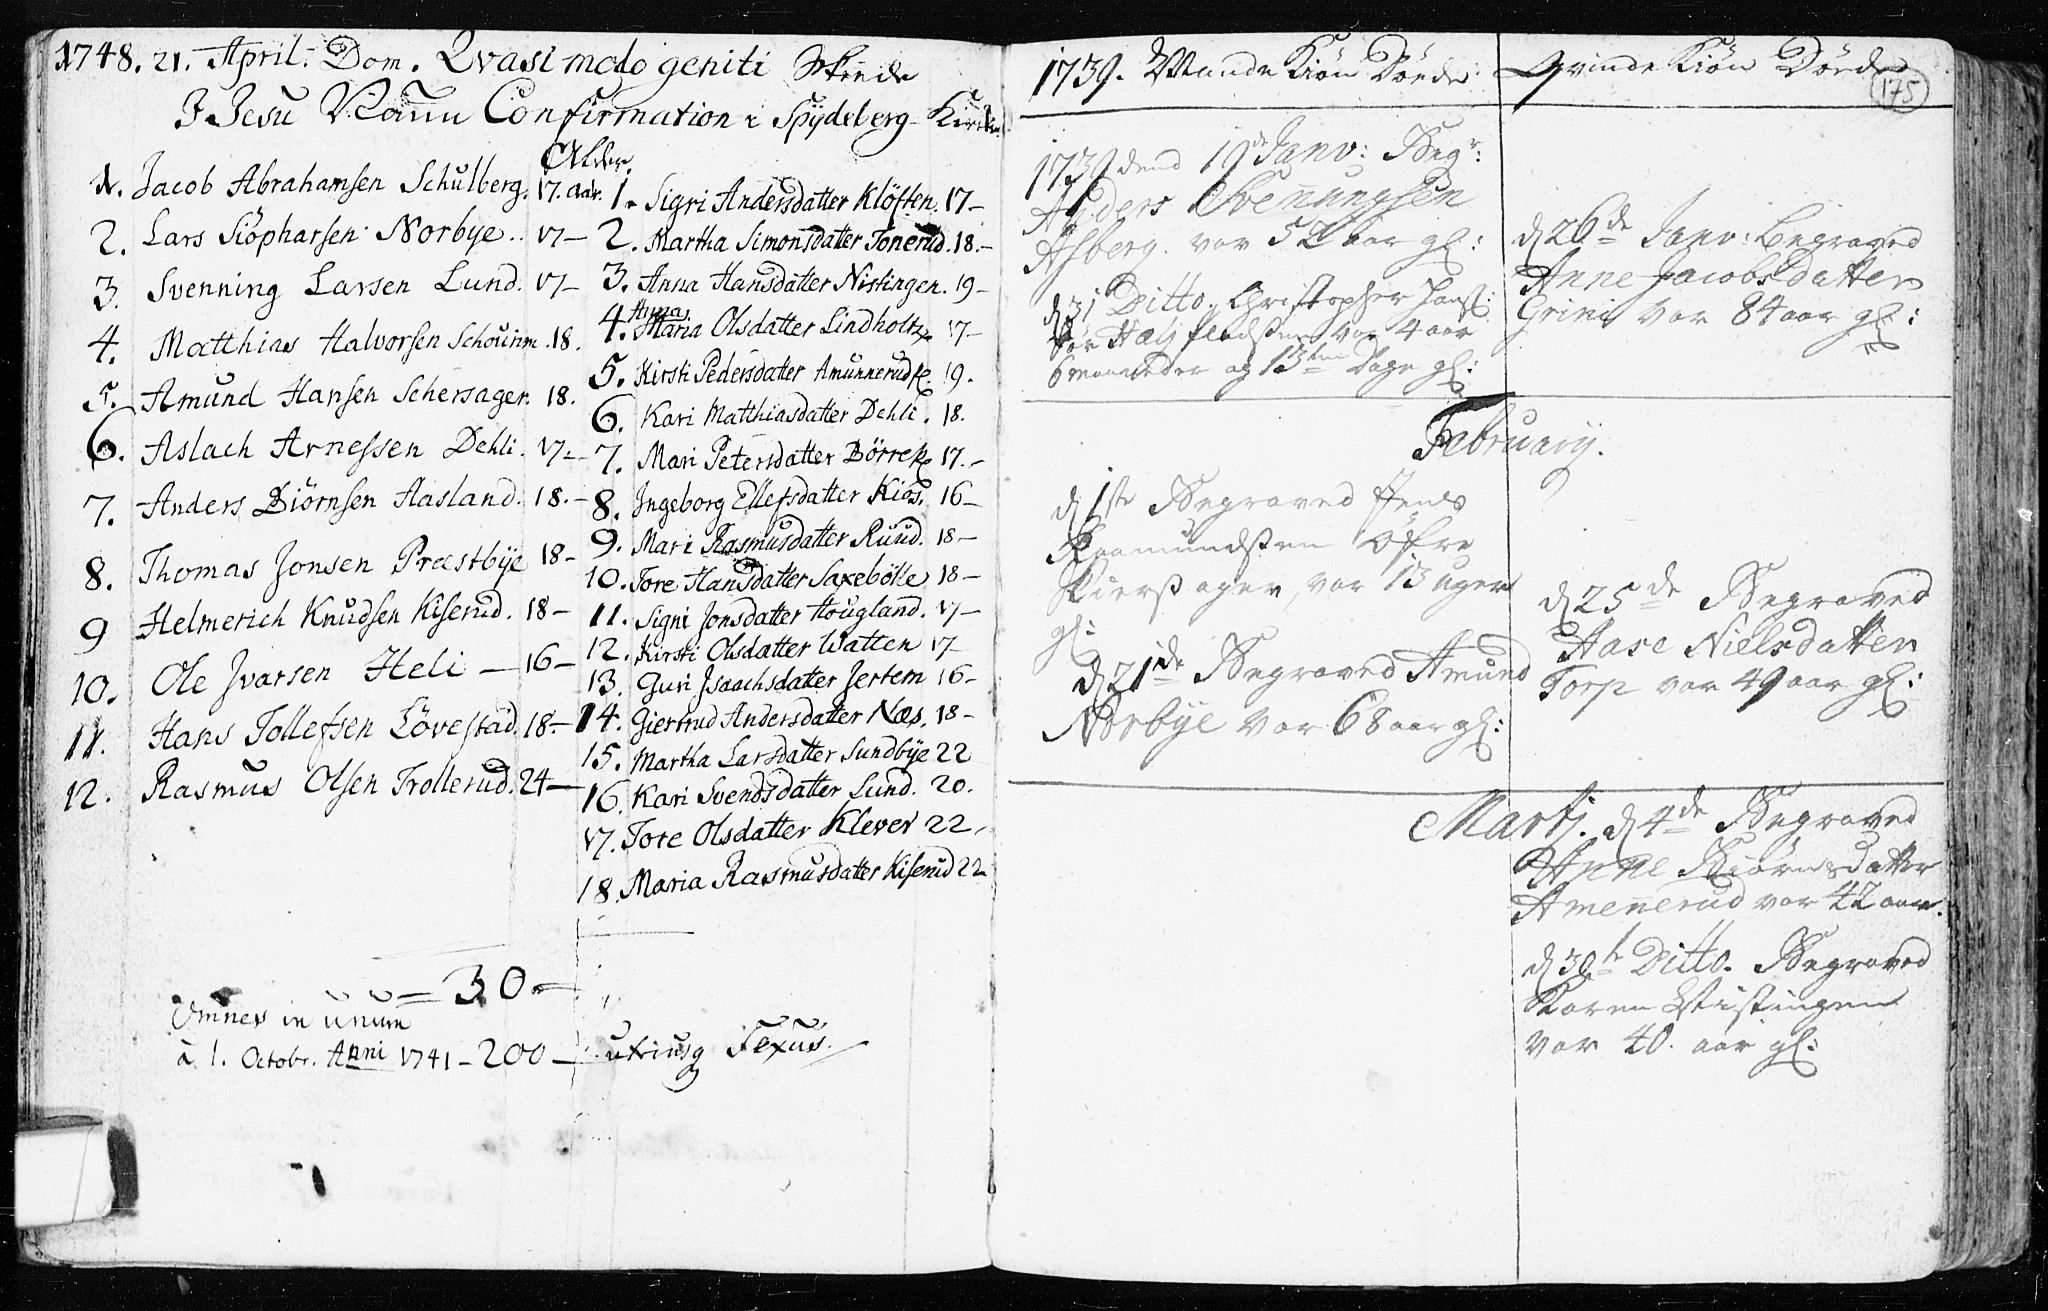 1748. 21. April. Dom. Qvasi modo geniti Skeede
I Jesu Nafn Confirmation i Spydeberg Kirke
Alder.
1. Jacob Abrahamsen Schulberg. 17. aar.
2. Lars Siöpharsen Norbÿe.. 17 —
3. Svenning Larsen Lund. 17 —
4. Matthias Halvorsen Schouinn. 18.
5. Amund Hansen Schersager. 18.
6. Aslach Arnessen Dehli. 17. —
7. Anders Biörnsen Aasland. 18. —
8. Thomas Jonsen Præstbÿe 18 —
9 Helmerich Knudsen Kiserud. 18 —
10. Ole Jvarsen Heli — 16 —
11. Hans Tollefsen Lövestad. 18. —
12. Rasmus Olsen Trollerud. 24 —
1. Sigri Andersdatter Klöften. 17 —
2. Martha Simonsdatter Tonerud. 18. —
3. Anna Hansdatter Nistingen. 19 —
Anna
4. Maria Olsdatter Lindholtz 17 —
5. Kirsti Pedersdatter Amunnerud 19.
6. Kari Matthiasdatter Dehli. 18.
7. Mari Petersdatter Börrek 17. —
8. Jngeborg Ellefsdatter Kios. 16 —
9. Mari Rasmusdatter Ruud. 18 —
10. Tore Hansdatter Saxebölle 18 —
11. Signi Jonsdatter Hougland. 17 —
12. Kirsti Olsdatter Watten 17 —
13. Guri Jsaachsdatter Jertem 16 —
14. Giertrud Andersdatter Næs. 18 —
15. Martha Larsdatter Sundbÿe 22
16. Kari Svendsdatter Lund. 20.
17. Tore Olsdatter Klever 22,
18. Maria Rasmusdatter Kiserud 22 —
= 30. —
Omnes in unum
à 1. Octobr. Anni 1741 — 200 — utriusq Sexus.
1739. Mande Kiön Döede
Qvinde Kiön Döede
175
1739 dend 19de Janv: Begr:
Anders Svennungsen
Asberg. var 52 aar gl:
d 31 Ditto. Christopher Jans:
var 4 aar
6 maaneder og 13ten Dage gl:
d 26de Janv: Begraved
Anne Jacobsdatter
Grini var 84 aar gl:
February.
d 1ste Begraved Jens
Raamundsen Öfre
Skiersager, var 13 uger
gl:
d 21de Begraved Amund
Norbÿe var 68 aar gl:
d 25de Begraved
Aase Nielsdatter
Torp var 49 aar gl:
Martj. d 4de Begraved
Anne Biörnsdatter
Amennerud var 42 aar.
d 30te Ditto. Begraved
Karen Nistingen
var 40. aar gl: